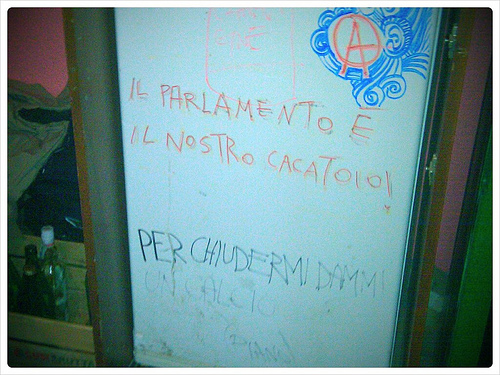 A
IL PARLAMENTO E
IL NOSTRO CACATOIO!
PER CHIUDERMI DAMMI
UN CALCIO
(PIANO)